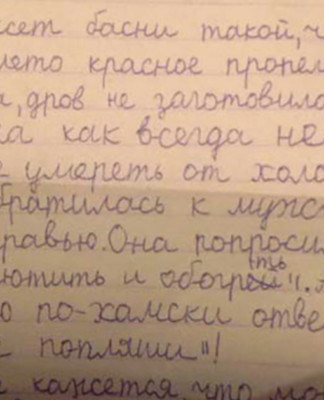 сет басни такой, ч
лето красное пропел
а, дров не заготовила
на как всегда не
е умереть от холо
братилась к муж
равью. Она попроси
ютить и обогреть".
о по-хамски отве
и попляши"!
е кажется, что мо